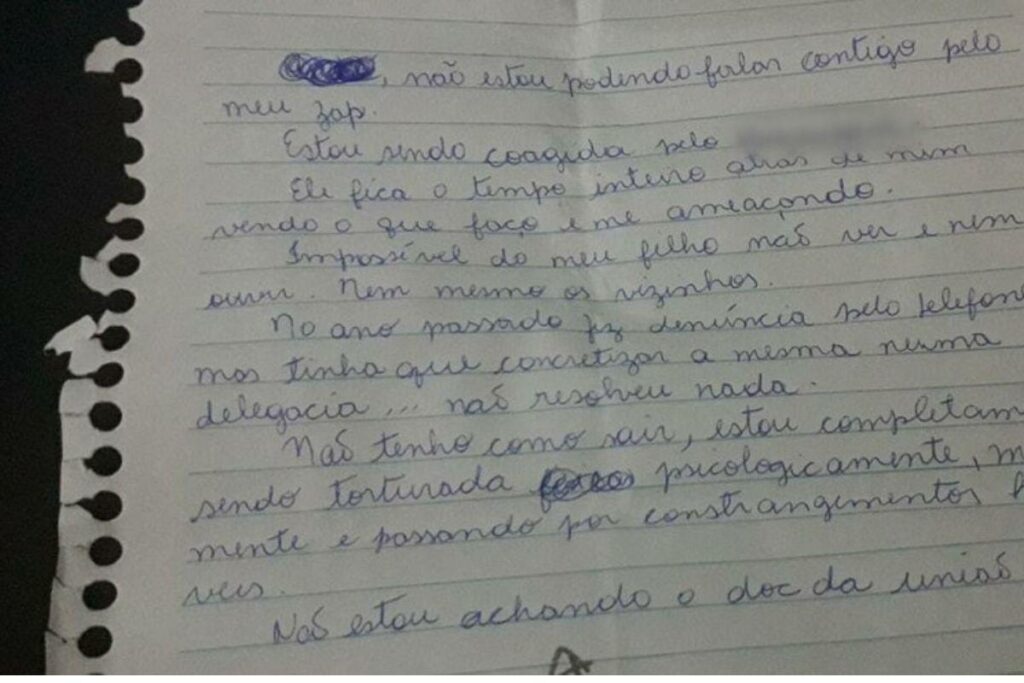 , não estou podendo falar contigo pelo
meu zap.
Estou sendo coagida pelo
Ele fica o tempo inteiro atras de mim
vendo o que faço e me ameaçando.
Impossível do meu filho naõ ver e nem
ouvir. Nem mesmo os vizinhos.
No ano passado fiz denúncia pelo telefone
mas tinha que concretizar a mesma numa
delegacia... naõ resolveu nada.
Naõ tenho como sair, estou completam
sendo torturada psicologicamente, m
mente e passando por constrangimentos h
veis.
Naõ estou achando o doc da uniaõ
A